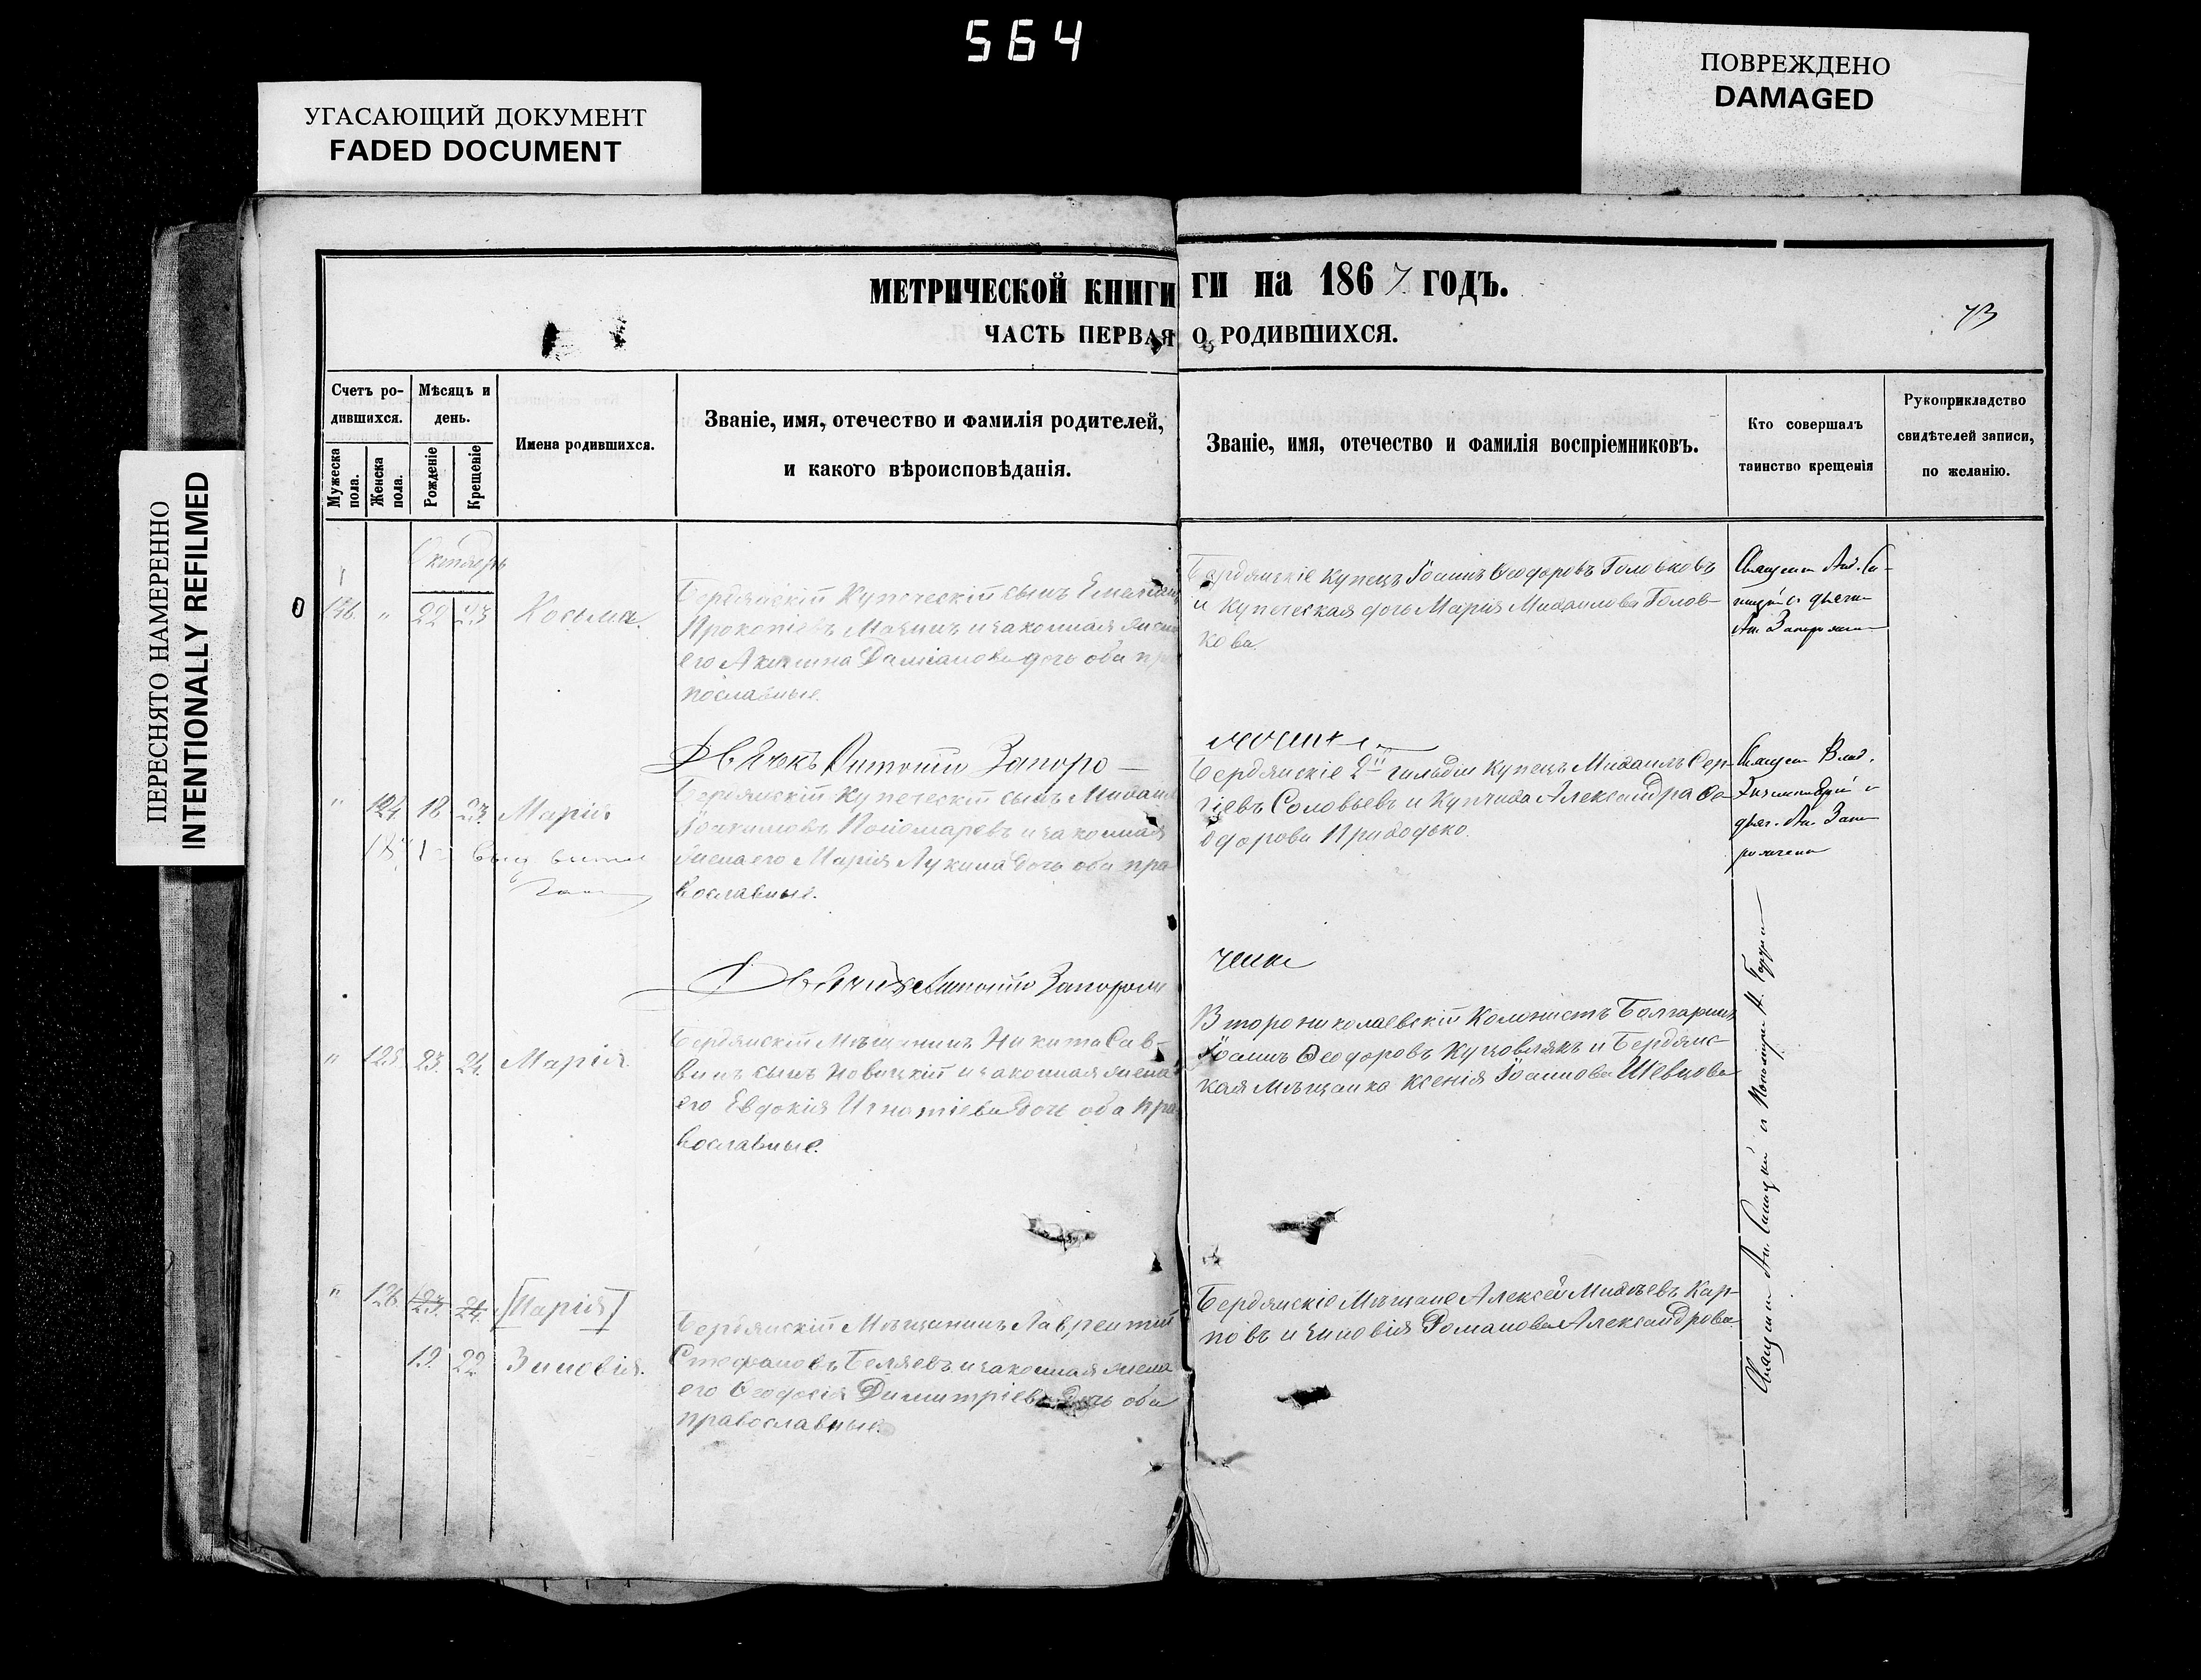 564
УГАСАЮЩИЙ ДОКУМЕНТ
FADED DOCUMENT
ПОВРЕЖДЕНО
DAMAGED
ПЕРЕСНЯТО НАМЕРЕННО
INTENTIONALLY REFILMED
МЕТРИЧЕСКОЙ КНИГИ
ГИ на 1867 ГОДЪ.
73
ЧАСТЬ ПЕРВАЯ
О РОДИВШИХСЯ.
Счетъ ро-
дившихся.
Мужеска пола.
Женска пола.
Мѣсяцъ и
день.
Рожденіе
Крещеніе
Имена родившихся.
Званіе, имя, отечество и фамилія родителей,
и какого вѣроисповѣданія.
Званіе, имя, отечество и фамилія воспріемниковъ.
Кто совершалъ
таинство крещенія
Рукоприкладство
свидѣтелей записи,
по желанію.
Октябрь
136. " 22 23 Косьма.
Бердянскій Купеческій сынъ
Прокопіевъ и законная
его Даміанова дочь оба
вославные.
Бердянскіе Купецъ Іоаннъ Ѳеодоровъ Головковъ
и купеческая дочь Марія Михаилова Голов-
кова.
Дьячекъ Антоній Запоро-
жченко
" 124. 18 23. Марія
Бердянскій Купеческій сынъ Михаилъ
Іоакимовъ Пономаревъ и законная
жена его Марія Лукина дочь оба пра
вославные.
Бердянскіе 2й гильдіи Купецъ Михаилъ Сер-
гіевъ Соловьевъ и Купчиха Александра Ѳе-
одорова Приходько.
Антоній Запорож
ченко
" 125. 23. 24. Марія.
Бердянскій Мѣщанинъ Никита Сав-
винъ сынъ Новицкій и законная жена
его Евдокія Игнатіева дочь оба пра
вославные.
Второниколаевскій Колонистъ Болгаринъ
Іоаннъ Ѳеодоровъ и Бердянс-
кая Мѣщанка Ксенія Іоаннова Шевцова
" 126. 23. 24. [Марія]
19. 22 Зиновія.
Бердянскій Мѣщанинъ Лаврентій
Стефановъ Беляевъ и законная жена
его Ѳеодосія Димитріева дочь оба
православные.
Бердянскіе Мѣщане Алексей Михѣевъ Кар-
повъ и Зиновія Романова Александрова.